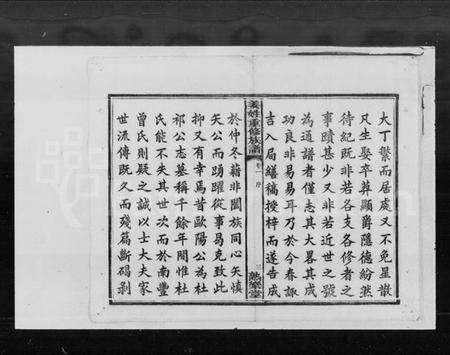 大丁繁而居處又不免星散
凡生娶卒葬顯爵隱德紛然
待紀旣非若各支各修者之
事蹟甚少又非若近世之號
為通譜者僅志其大畧其成
功良非易易耳乃於今春諏
吉入局繕稿授梓而遂告成
姜姓重修族譜
卷一
序
於仲冬藉非闔族同心矢慎
矢公而踴躍從事曷克致此
抑又有幸焉昔歐陽公為杜
祁公志墓稱千餘年間惟杜
氏能不失其世次而於南豐
曾氏則疑之誠以士大夫家
世流傳旣久而殘篇斷碣剥